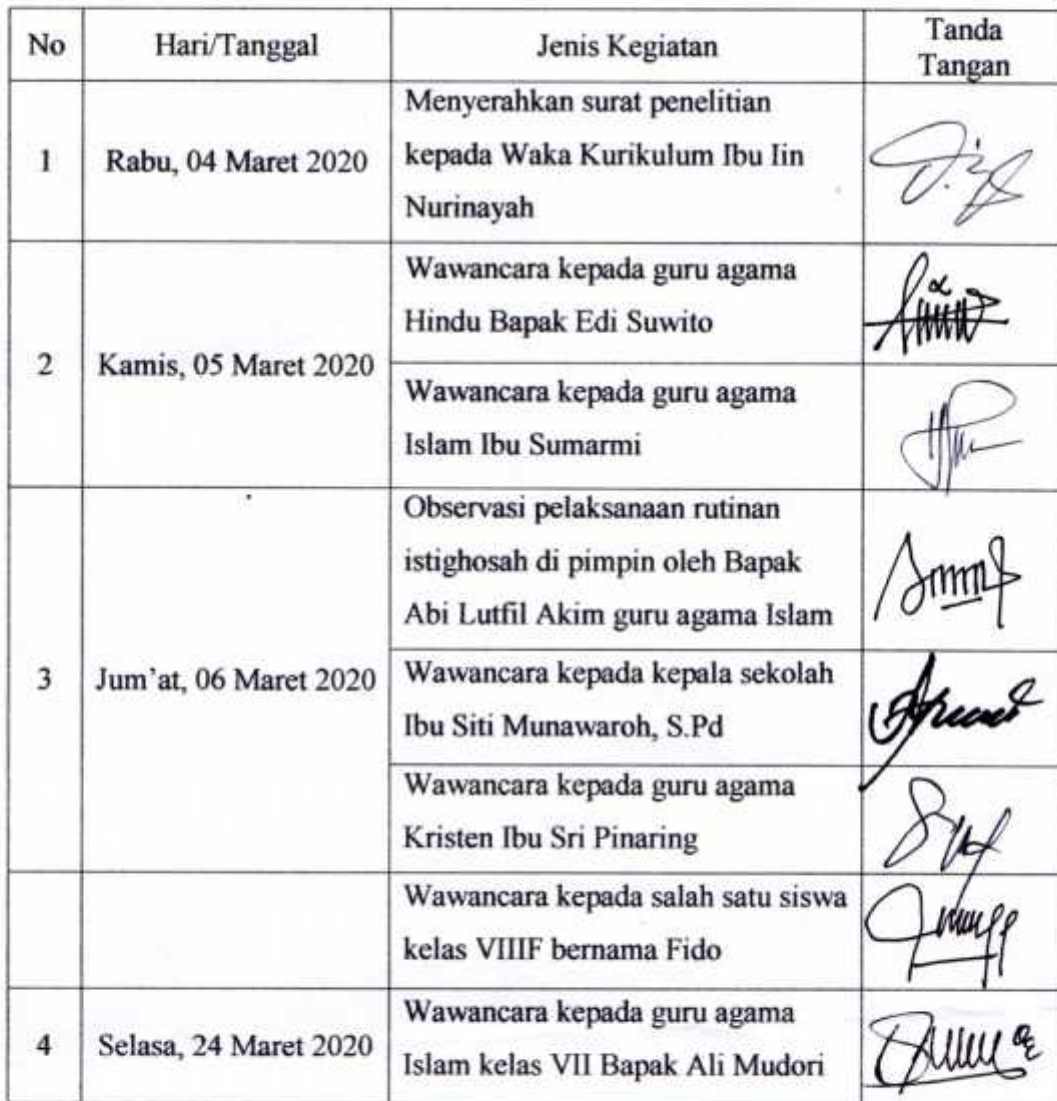 No
Hari/Tanggal
Jenis Kegiatan
Tanda
Tangan
1
Rabu, 04 Maret 2020
Menyerahkan surat penelitian
kepada Waka Kurikulum Ibu Iin
Nurinayah
2
Kamis, 05 Maret 2020
Wawancara kepada guru agama
Hindu Bapak Edi Suwito
Wawancara kepada guru agama
Islam Ibu Sumarmi
3
Jum'at, 06 Maret 2020
Observasi pelaksanaan rutinan
istighosah di pimpin oleh Bapak
Abi Lutfil Akim guru agama Islam
Wawancara kepada kepala sekolah
Ibu Siti Munawaroh, S.Pd
Wawancara kepada guru agama
Kristen Ibu Sri Pinaring
Wawancara kepada salah satu siswa
kelas VIIIF bernama Fido
4
Selasa, 24 Maret 2020
Wawancara kepada guru agama
Islam kelas VII Bapak Ali Mudori